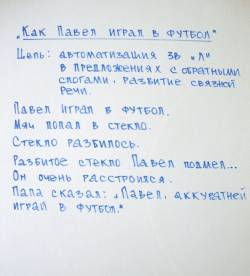 „Как Павел играл в футбол"
Цель: автоматизация зв "Л"
в предложениях с обратными
слогами, развитие связной
речи.
Павел играл в футбол.
Мяч попал в стекло.
Стекло разбилось.
Разбитое стекло Павел подмел...
Он очень расстроился.
Папа сказал: „Павел, аккуратней
играй в футбол."